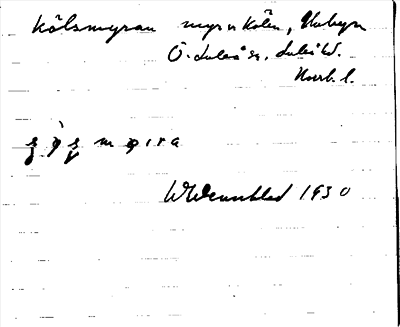 Kölsmyran myr v Kölen, Unbyn
Ö. Luleå sn, Luleå td.
Norrb. l.
W Wennblad 1930